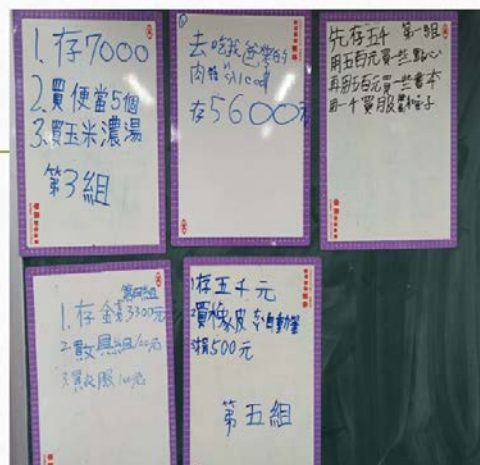 1. 存7000
2. 買便當5個
3. 買玉米濃湯
第3組
去吃我爸帶的
存5600
先存五千 第一組
用五百元買一些點心
再用五百元買一些書本
用一千買服
第四組
1. 存金錢3300元
2. 買文具組100元
3. 買衣服100元
1 存五千元
2 買橡皮 自動筆
3 捐500元
第五組